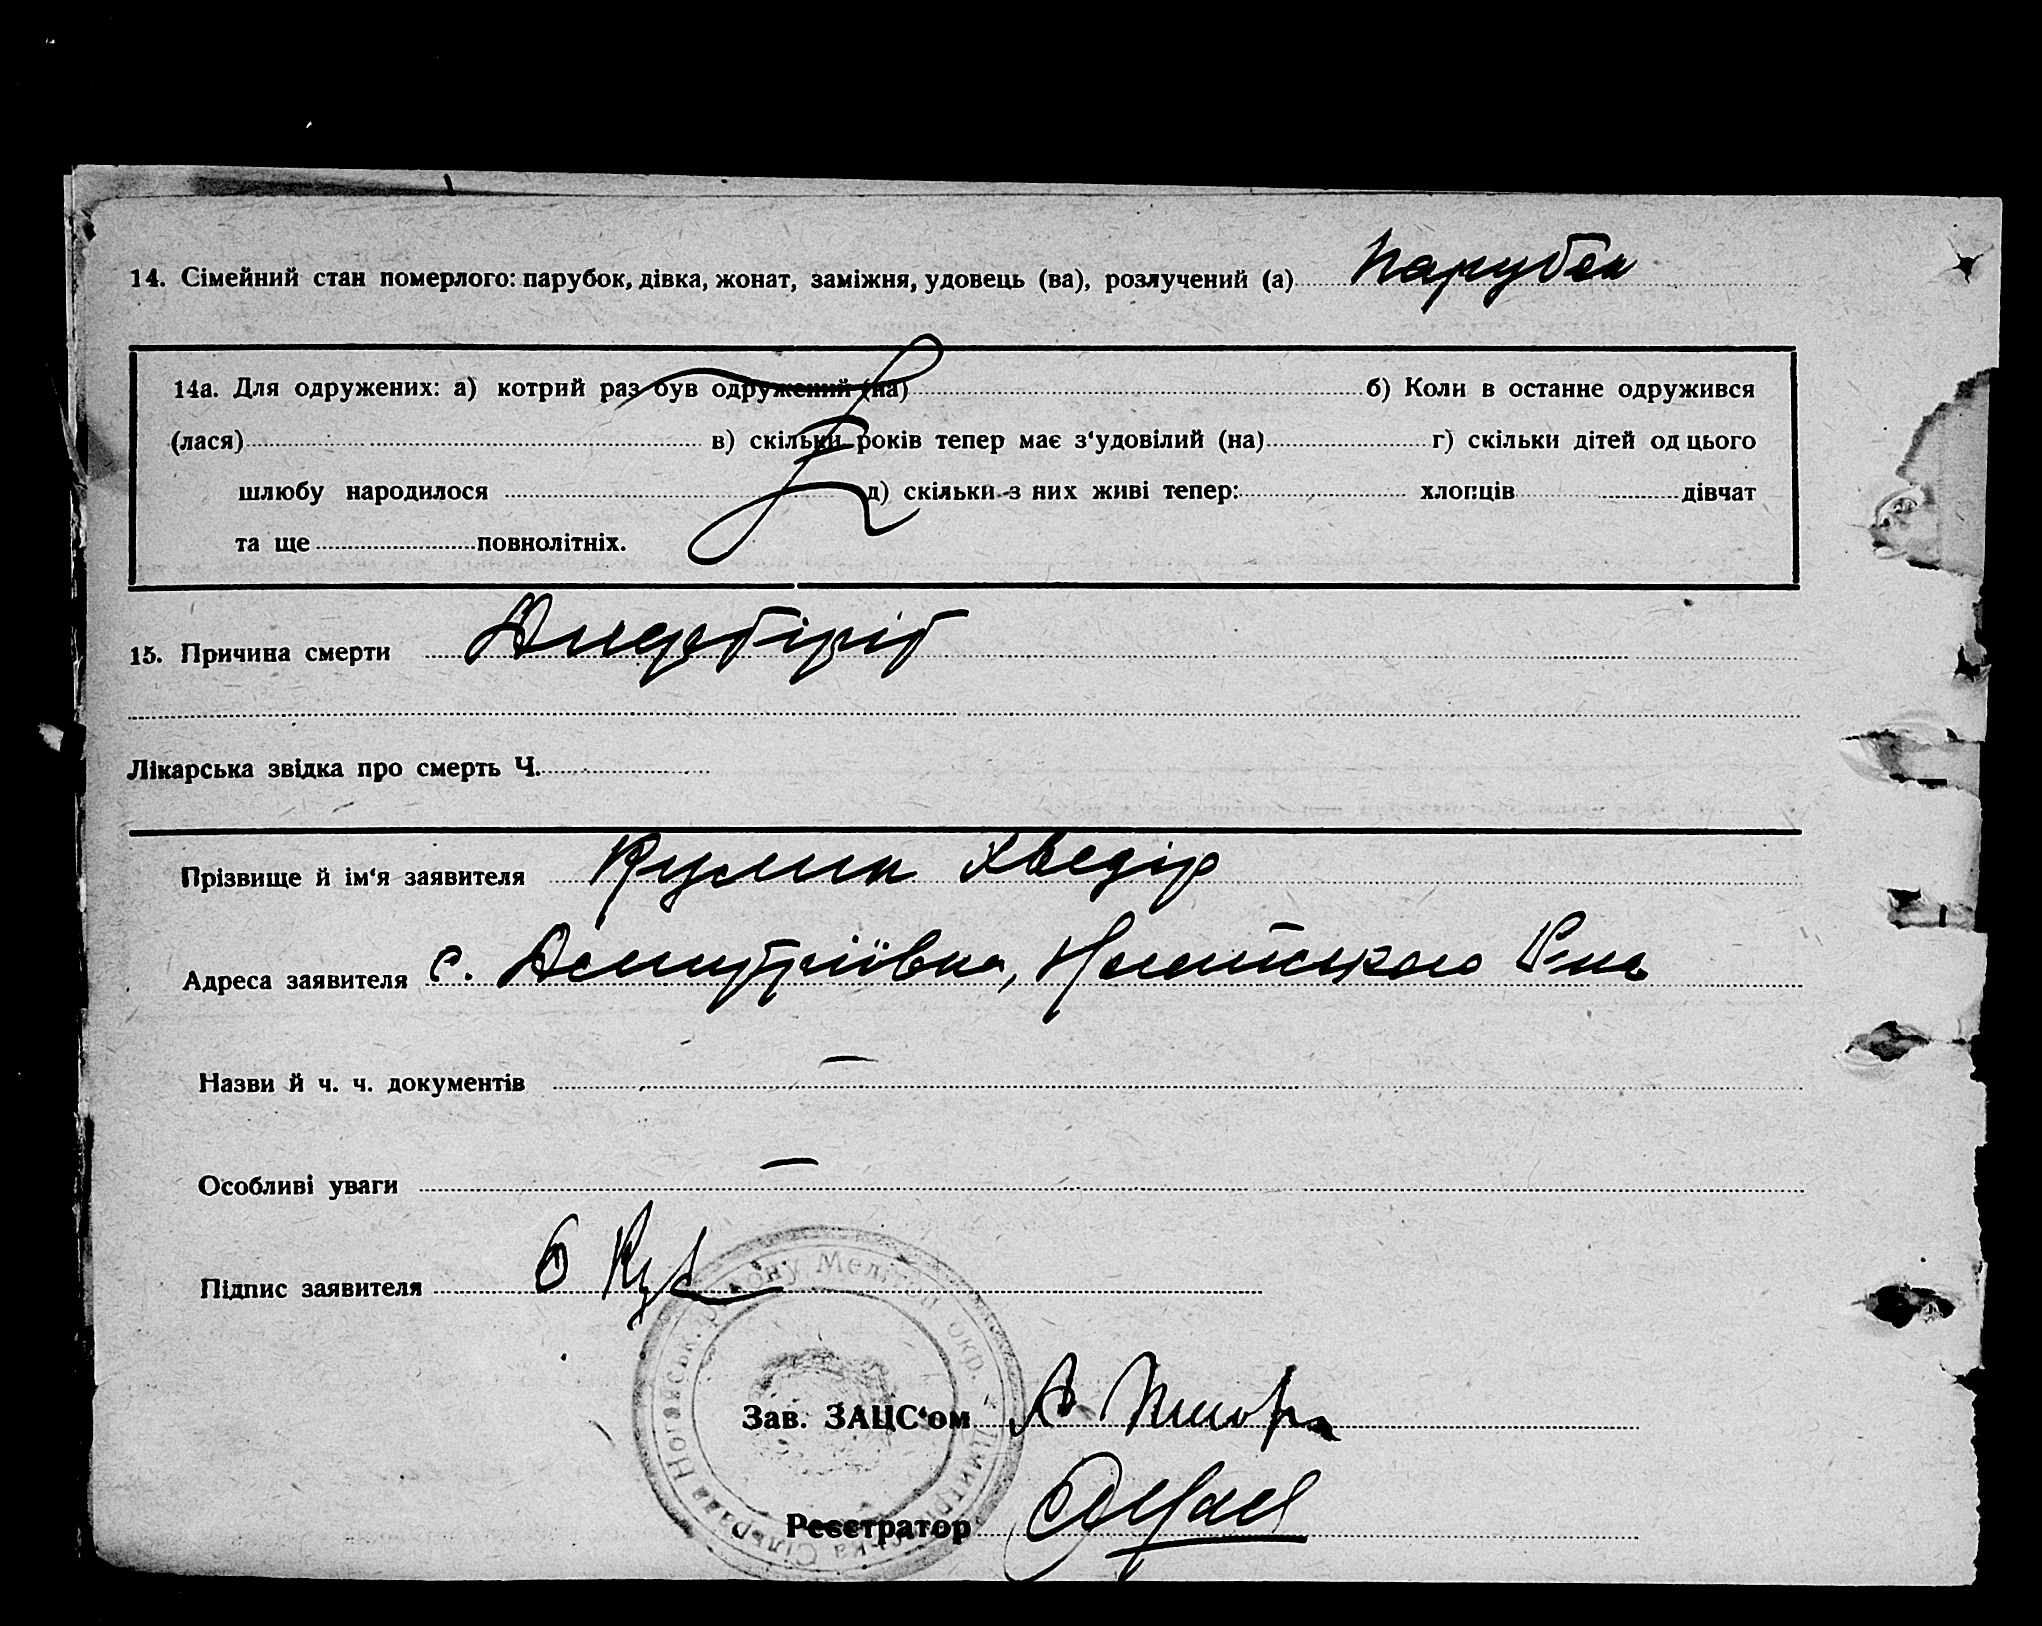 14. Сімейний стан померлого: парубок, дівка, жонат, заміжня, удовець (ва), розлучений (а) Парубок
14а. Для одружених: а) котрий раз був одружений (на) б) Коли в останне одружився
(лася) в) скільки років тепер має з'удовілий (на) г) скільки дітей од цього
шлюбу народилося д) скільки з них живі тепер: хлопців дівчат
та ще повнолітніх.
15. Причина смерти
Лікарська звідка про смерть Ч.
Прізвище й ім'я заявителя Кулик Хведір
Адреса заявителя с. Дімитріївка, Ногайського Р-на
Назви й ч. ч. документів —
Особливі уваги —
Підпис заявителя
Ногайськ. району Меліт. окр.
Сільрада
Зав. ЗАЦС'ом
Реєстратор